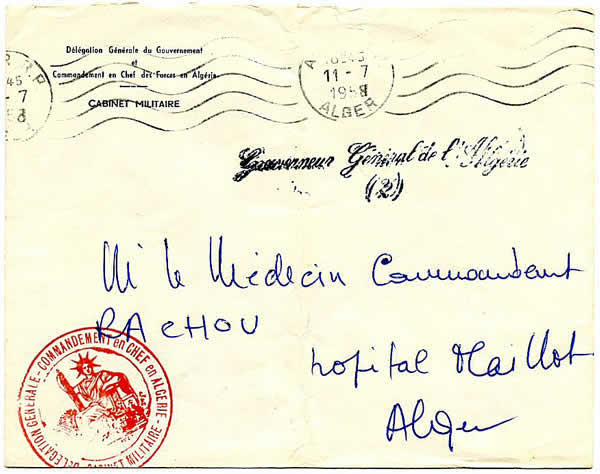 Délégation Générale du Gouvernement
et
Commandement en Chef des Forces en Algérie
CABINET MILITAIRE
R.P
45
-7
1958
11-7
1958
ALGER
Gouverneur Général de l'Algérie
(2)
Mr le Médecin Commandant
RACHOU
hopital Maillot
Alger
DELEGATION GENERALE - COMMANDEMENT en CHEF en ALGERIE -
CABINET MILITAIRE